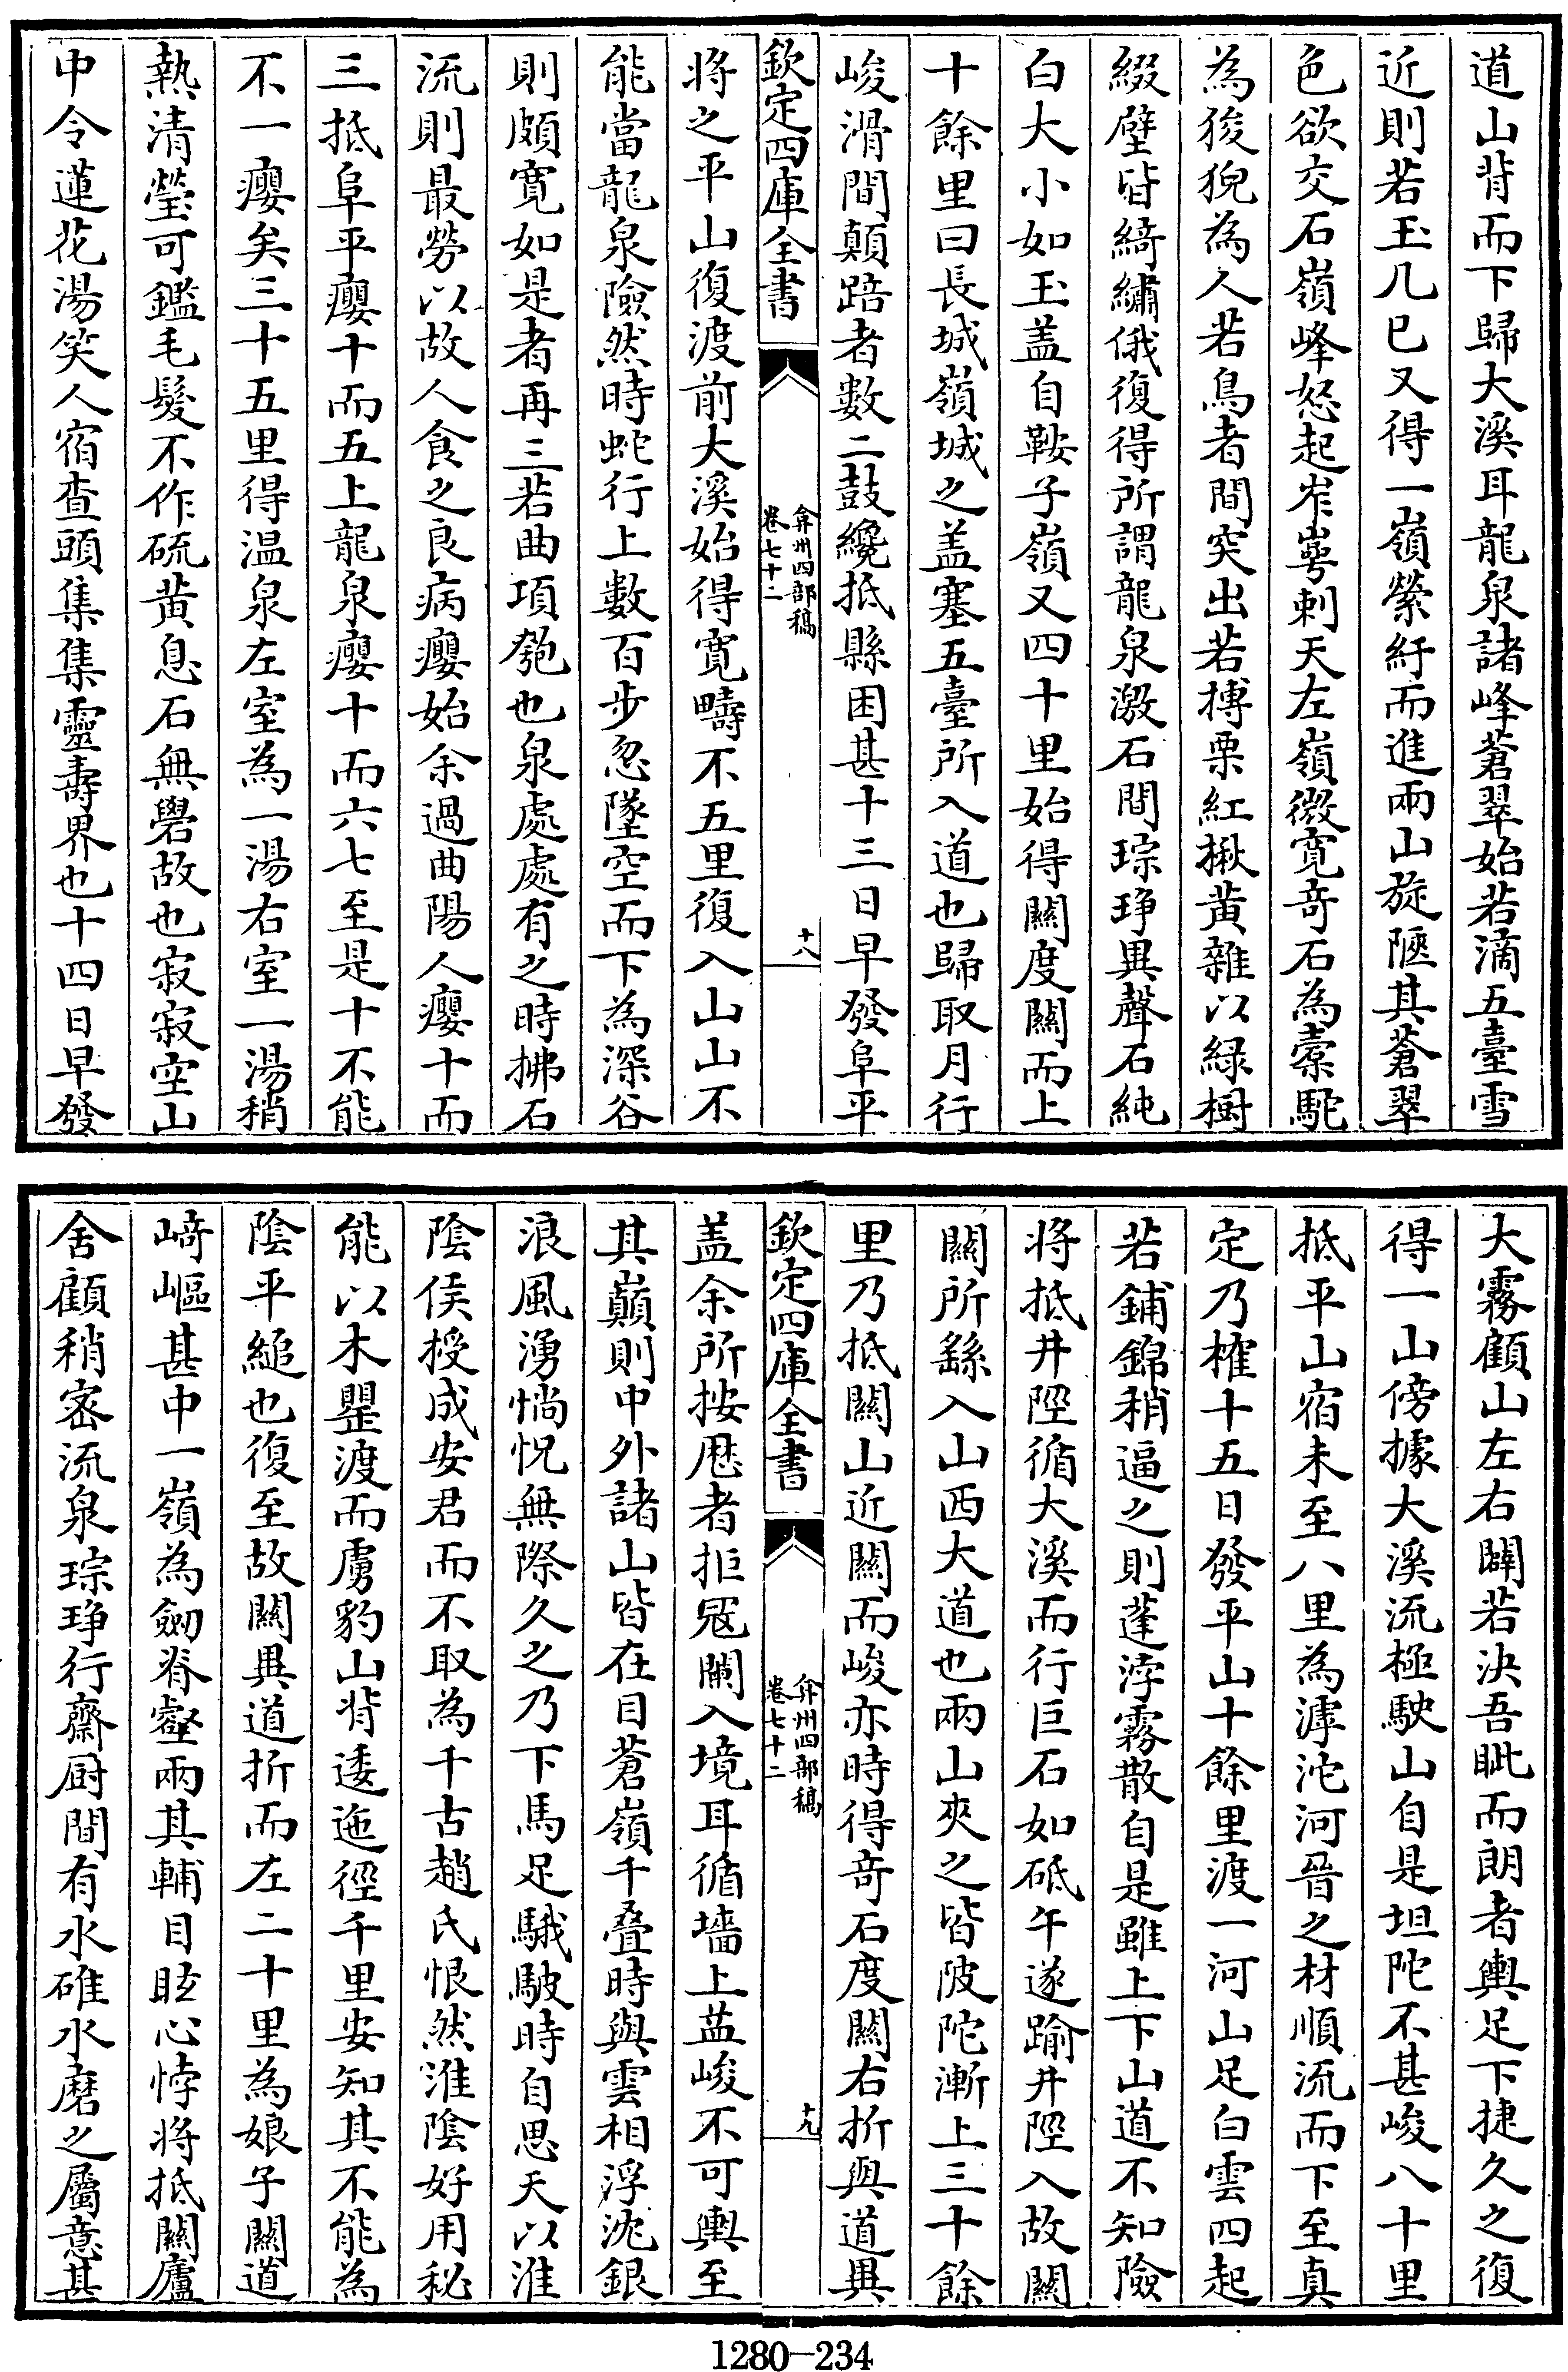 道山背而下歸大溪耳龍泉諸峰蒼翠始若滴五臺雪
近則若玉几已又得一嶺縈紆而進兩山旋陿其蒼翠
色欲交石嶺峰怒起岝崿刺天左嶺微寛奇石為橐駝
為狻猊為人若鳥者間突出若摶栗紅揪黄雜以緑樹
綴壁皆綺繡俄復得所謂龍泉激石間琮琤異聲石純
白大小如玉盖自鞍子嶺又四十里始得關度關而上
十餘里曰長城嶺城之盖塞五臺所入道也歸取月行
峻滑間顛踣者數二鼓纔抵縣困甚十三日早發阜平
欽定四庫全書
弇州四部稿
卷七十二
十八
將之平山復渡前大溪始得寛疇不五里復入山山不
能當龍泉險然時蛇行上數百步忽墜空而下為深谷
則頗寛如是者再三若曲項匏也泉處處有之時拂石
流則最勞以故人食之良病癭始余過曲陽人癭十而
三抵阜平癭十而五上龍泉癭十而六七至是十不能
不一癭矣三十五里得温泉左室為一湯右室一湯稍
熱清瑩可鑑毛髮不作硫黄息石無礜故也寂寂空山
中令蓮花湯笑人宿查頭集集靈壽界也十四日早發
大霧顧山左右闢若決吾眦而朗者輿足下捷久之復
得一山傍據大溪流極駛山自是坦陀不甚峻八十里
抵平山宿未至八里為滹沱河晉之材順流而下至真
定乃榷十五日發平山十餘里渡一河山足白雲四起
若鋪錦稍逼之則蓬浡霧散自是雖上下山道不知險
將抵井陘循大溪而行巨石如砥午遂踰井陘入故關
關所繇入山西大道也兩山夾之皆陂陀漸上三十餘
里乃抵關山近關而峻亦時得奇石度關右折與道異
欽定四庫全書
弇州四部稿
卷七十二
十九
盖余所按厯者拒冦闌入境耳循墻上益峻不可輿至
其巔則中外諸山皆在目蒼嶺千叠時與雲相浮沈銀
浪風湧惝怳無際久之乃下馬足駊騀時自思天以淮
陰侯授成安君而不取為千古趙氏恨然淮陰好用秘
能以木罌渡而虜豹山背逶迤徑千里安知其不能為
陰平縋也復至故關異道折而左二十里為娘子關道
﨑嶇甚中一嶺為劒脊壑兩其輔目眩心悸將抵關廬
舍顧稍宻流泉琮琤行齋厨間有水碓水磨之屬意甚
1280-234